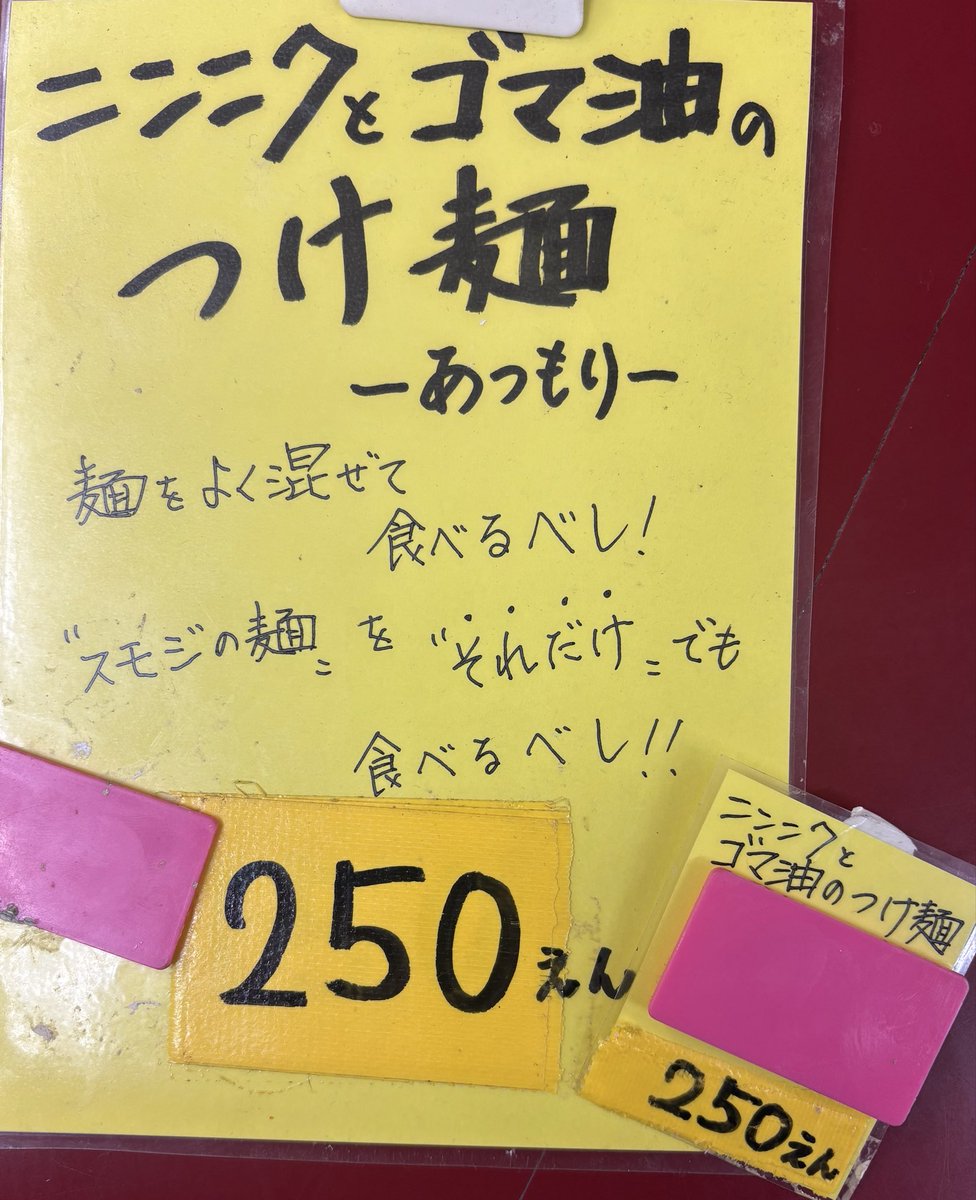 ニンニクとゴマ油の
つけ麺
ーあつもりー
麺をよく混ぜて
食べるべし!
〝スモジの麺〟を〝それだけ〟でも
食べるべし!!
250えん
ニンニクと
ゴマ油のつけ麺
250えん